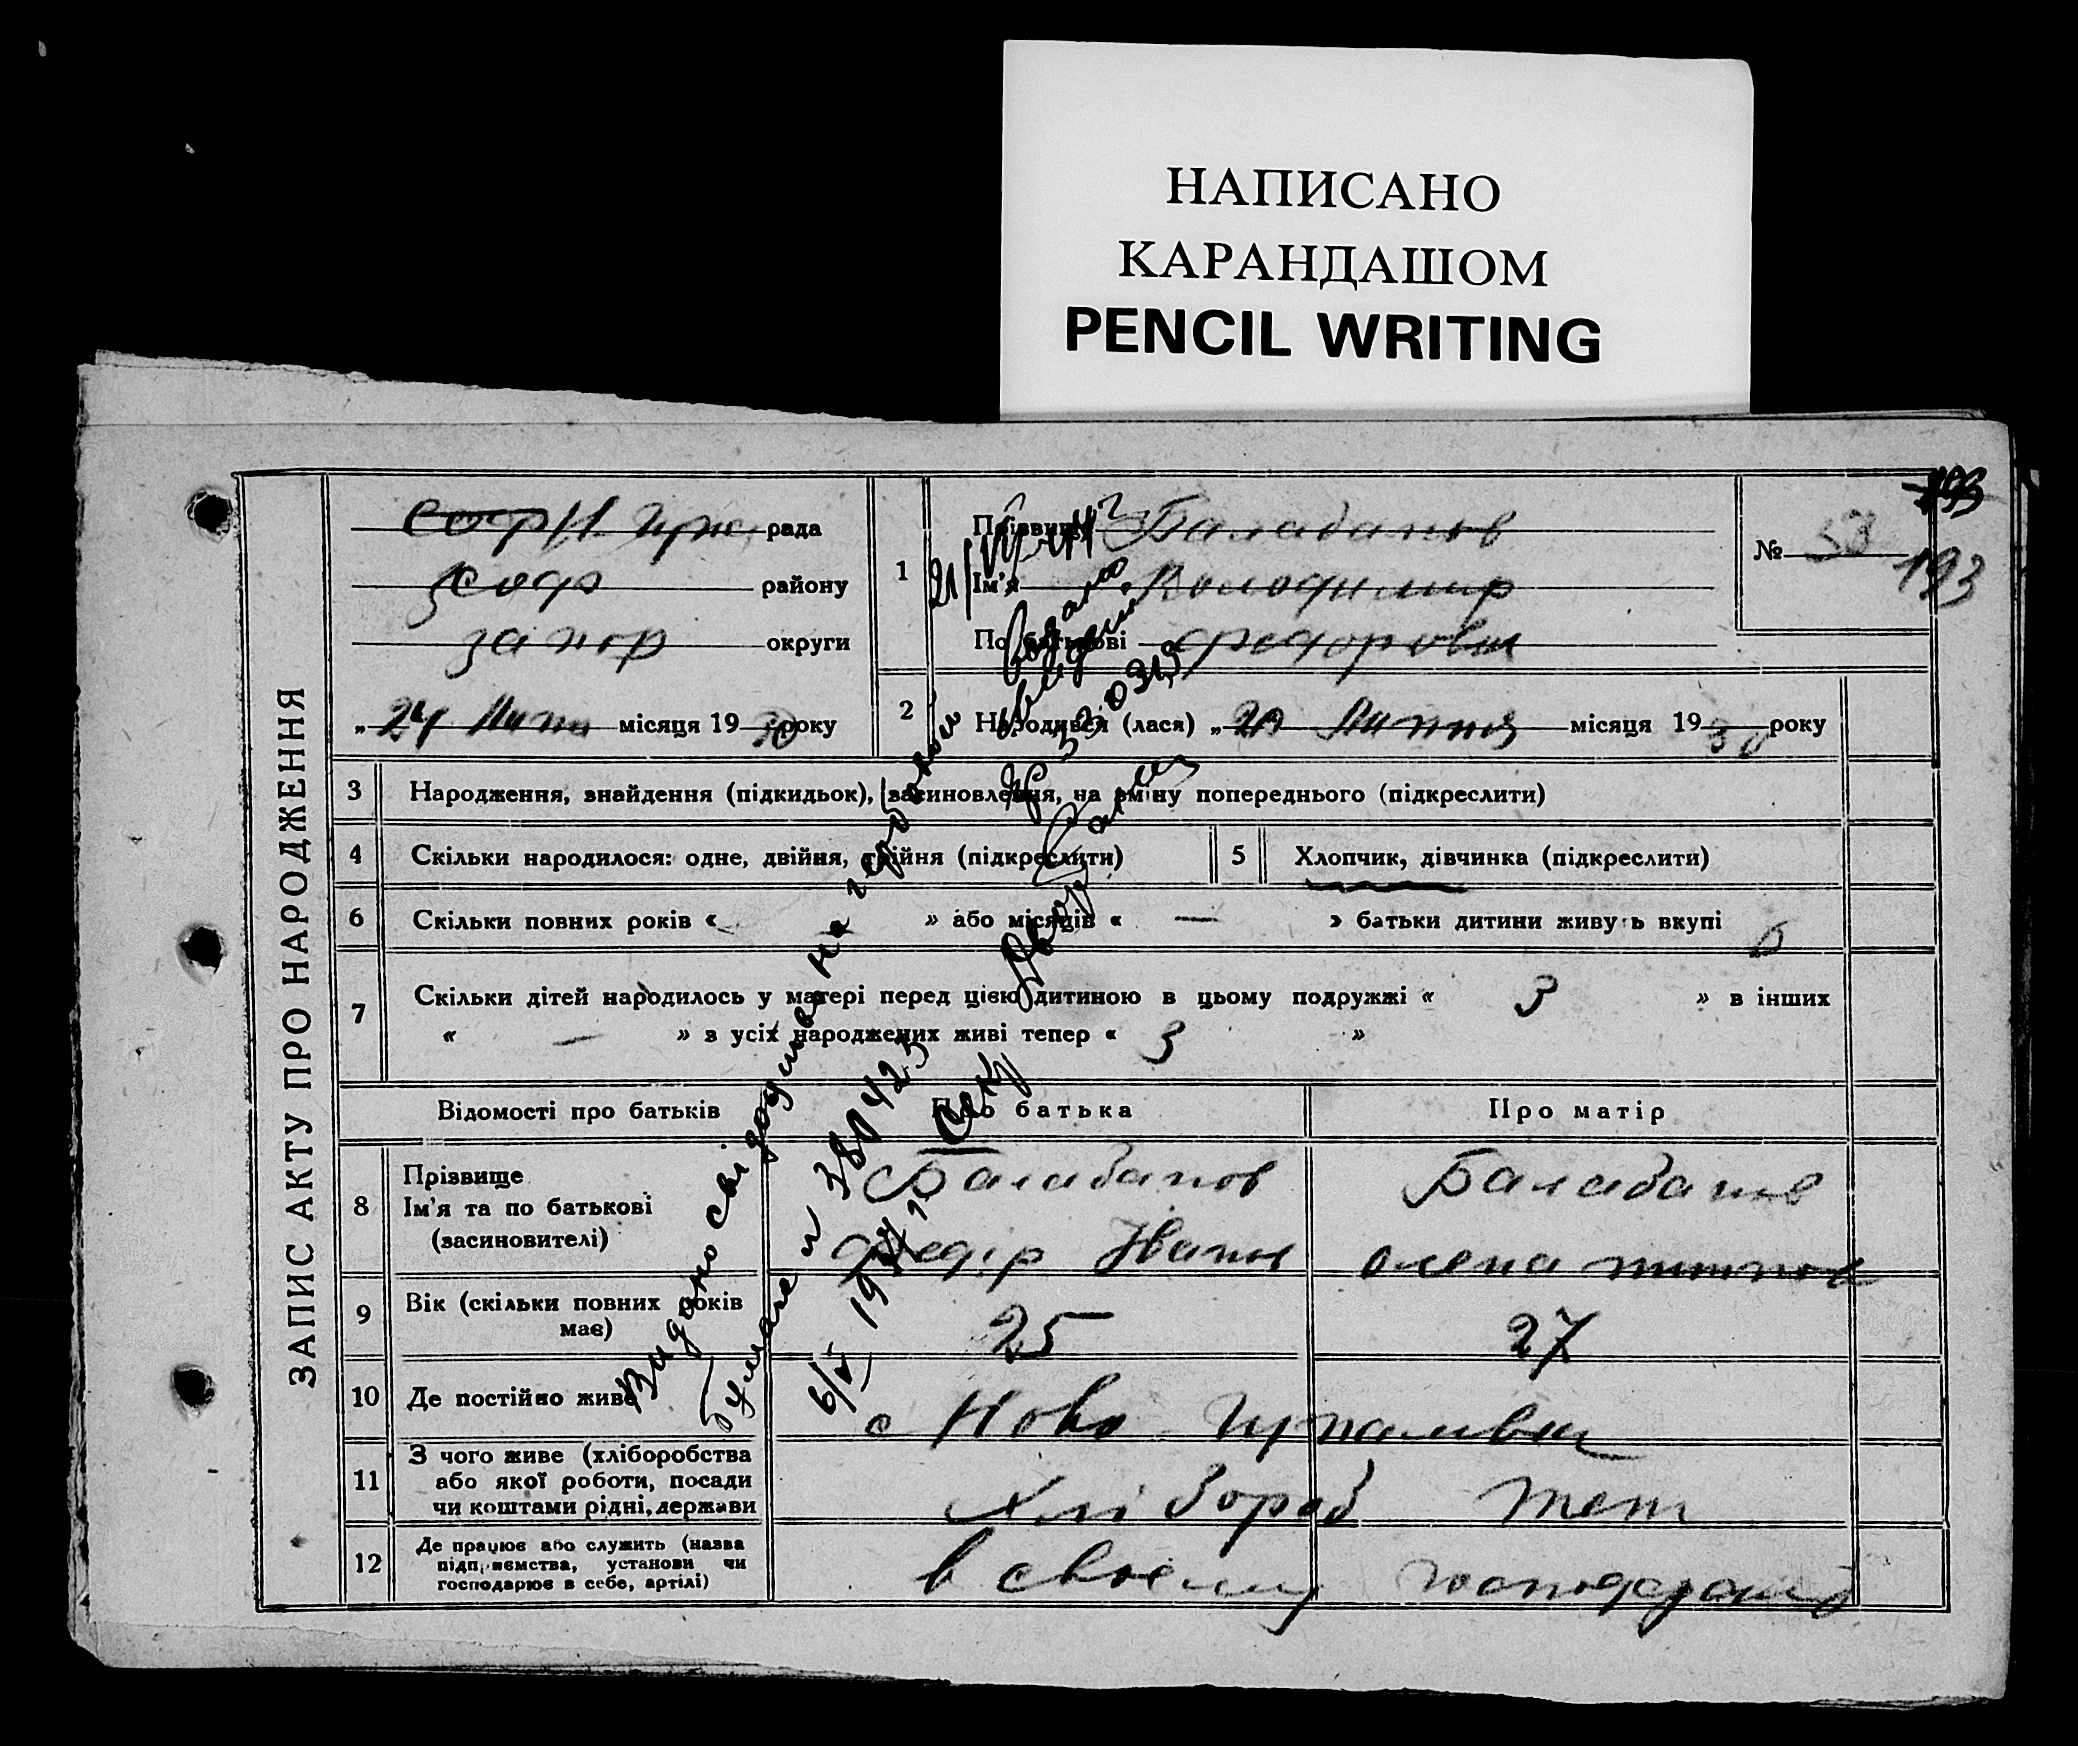 НАПИСАНО
КАРАНДАШОМ
PENCIL WRITING
ЗАПИС АКТУ ПРО НАРОДЖЕННЯ
рада
району
запор округи
„ 24 місяця 19 30 року
1
Прізвище Балабанов
Ім'я Володимир
По батькові Федорович
№ 53
193
193
2
Народився (лася) „ 20 Липня місяця 19 30 року
3 Народження, знайдення (підкидьок), засиновлення, на зміну попереднього (підкреслити)
4 Скільки народилося: одне, двійня, трійня (підкреслити)
5 Хлопчик, дівчинка (підкреслити)
6 Скільки повних років « » або місяців « — » батьки дитини живуть вкупі 6
7 Скільки дітей народилось у матері перед цією дитиною в цьому подружжі « 3 » в інших
« — » з усіх народжених живі тепер « 3 »
Відомості про батьків
Про батька
Про матір
8 Прізвище
Ім'я та по батькові
(засиновителі)
Балабанов
Федір Іванов
Балабанов
Олена
9 Вік (скільки повних років
має)
25
27
10 Де постійно живе
с Ново
11 З чого живе (хліборобства
або якої роботи, посади
чи коштами рідні, держави
хлібороб
теж
12 Де працює або служить (назва
підприємства, установи чи
господарює в себе, артілі)
в своєму господарстві
Видано свідоцтво на
380423
6/V 1941